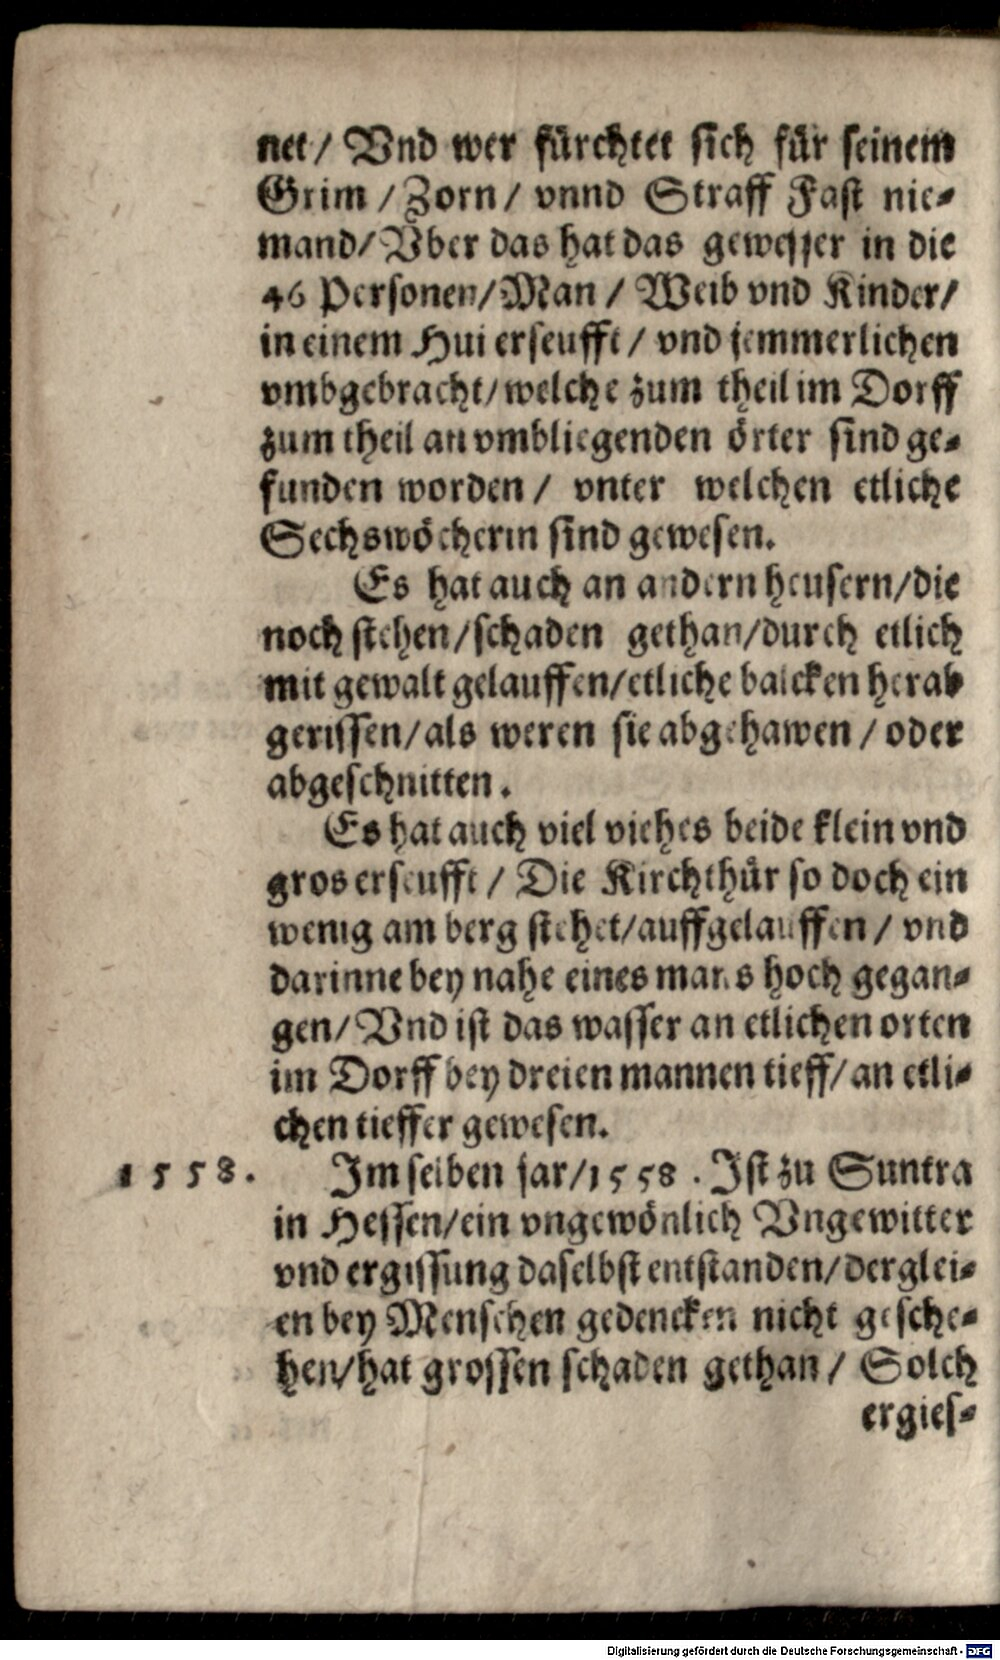 net/ Vnd wer fürchtet sich für seinem
Grim / Zorn / vnnd Straff Fast nie-
mand/ Vber das hat das gewesser in die
46 Personen/Man / Weib vnd Kinder/
in einem Hui erseufft / vnd jemmerlichen
vmbgebracht/welche zum theil im Dorff
zum theil an vmbliegenden örter sind ge-
funden worden / vnter welchen etliche
Sechswöcherin sind gewesen.
Es hat auch an andern heusern/die
noch stehen/schaden gethan/durch etlich
mit gewalt gelauffen/etliche balcken herab
gerissen/als weren sie abgehawen / oder
abgeschnitten.
Es hat auch viel viehes beide klein vnd
gros erseufft / Die Kirchthür so doch ein
wenig am berg stehet/auffgelauffen / vnd
darinne bey nahe eines mans hoch gegan-
gen/ Vnd ist das wasser an etlichen orten
im Dorff bey dreien mannen tieff/an etli-
chen tieffer gewesen.
1558. Im selben jar/1558. Ist zu Suntra
in Hessen/ein vngewönlich Vngewitter
vnd ergissung daselbst entstanden/derglei-
en bey Menschen gedencken nicht gesche-
hen/hat grossen schaden gethan / Solch
ergies-
Digitalisierung gefördert durch die Deutsche Forschungsgemeinschaft - DFG